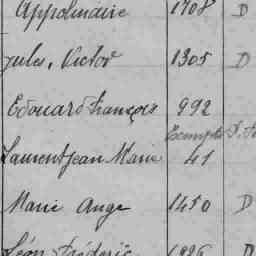 Appolinaire 1708 D
Jules, Victor 1305 D
Edouard François 992
Exempté
Laurent Jean Marie 41
Marie Ange 1450 D
Léon Frédéric 1826 D